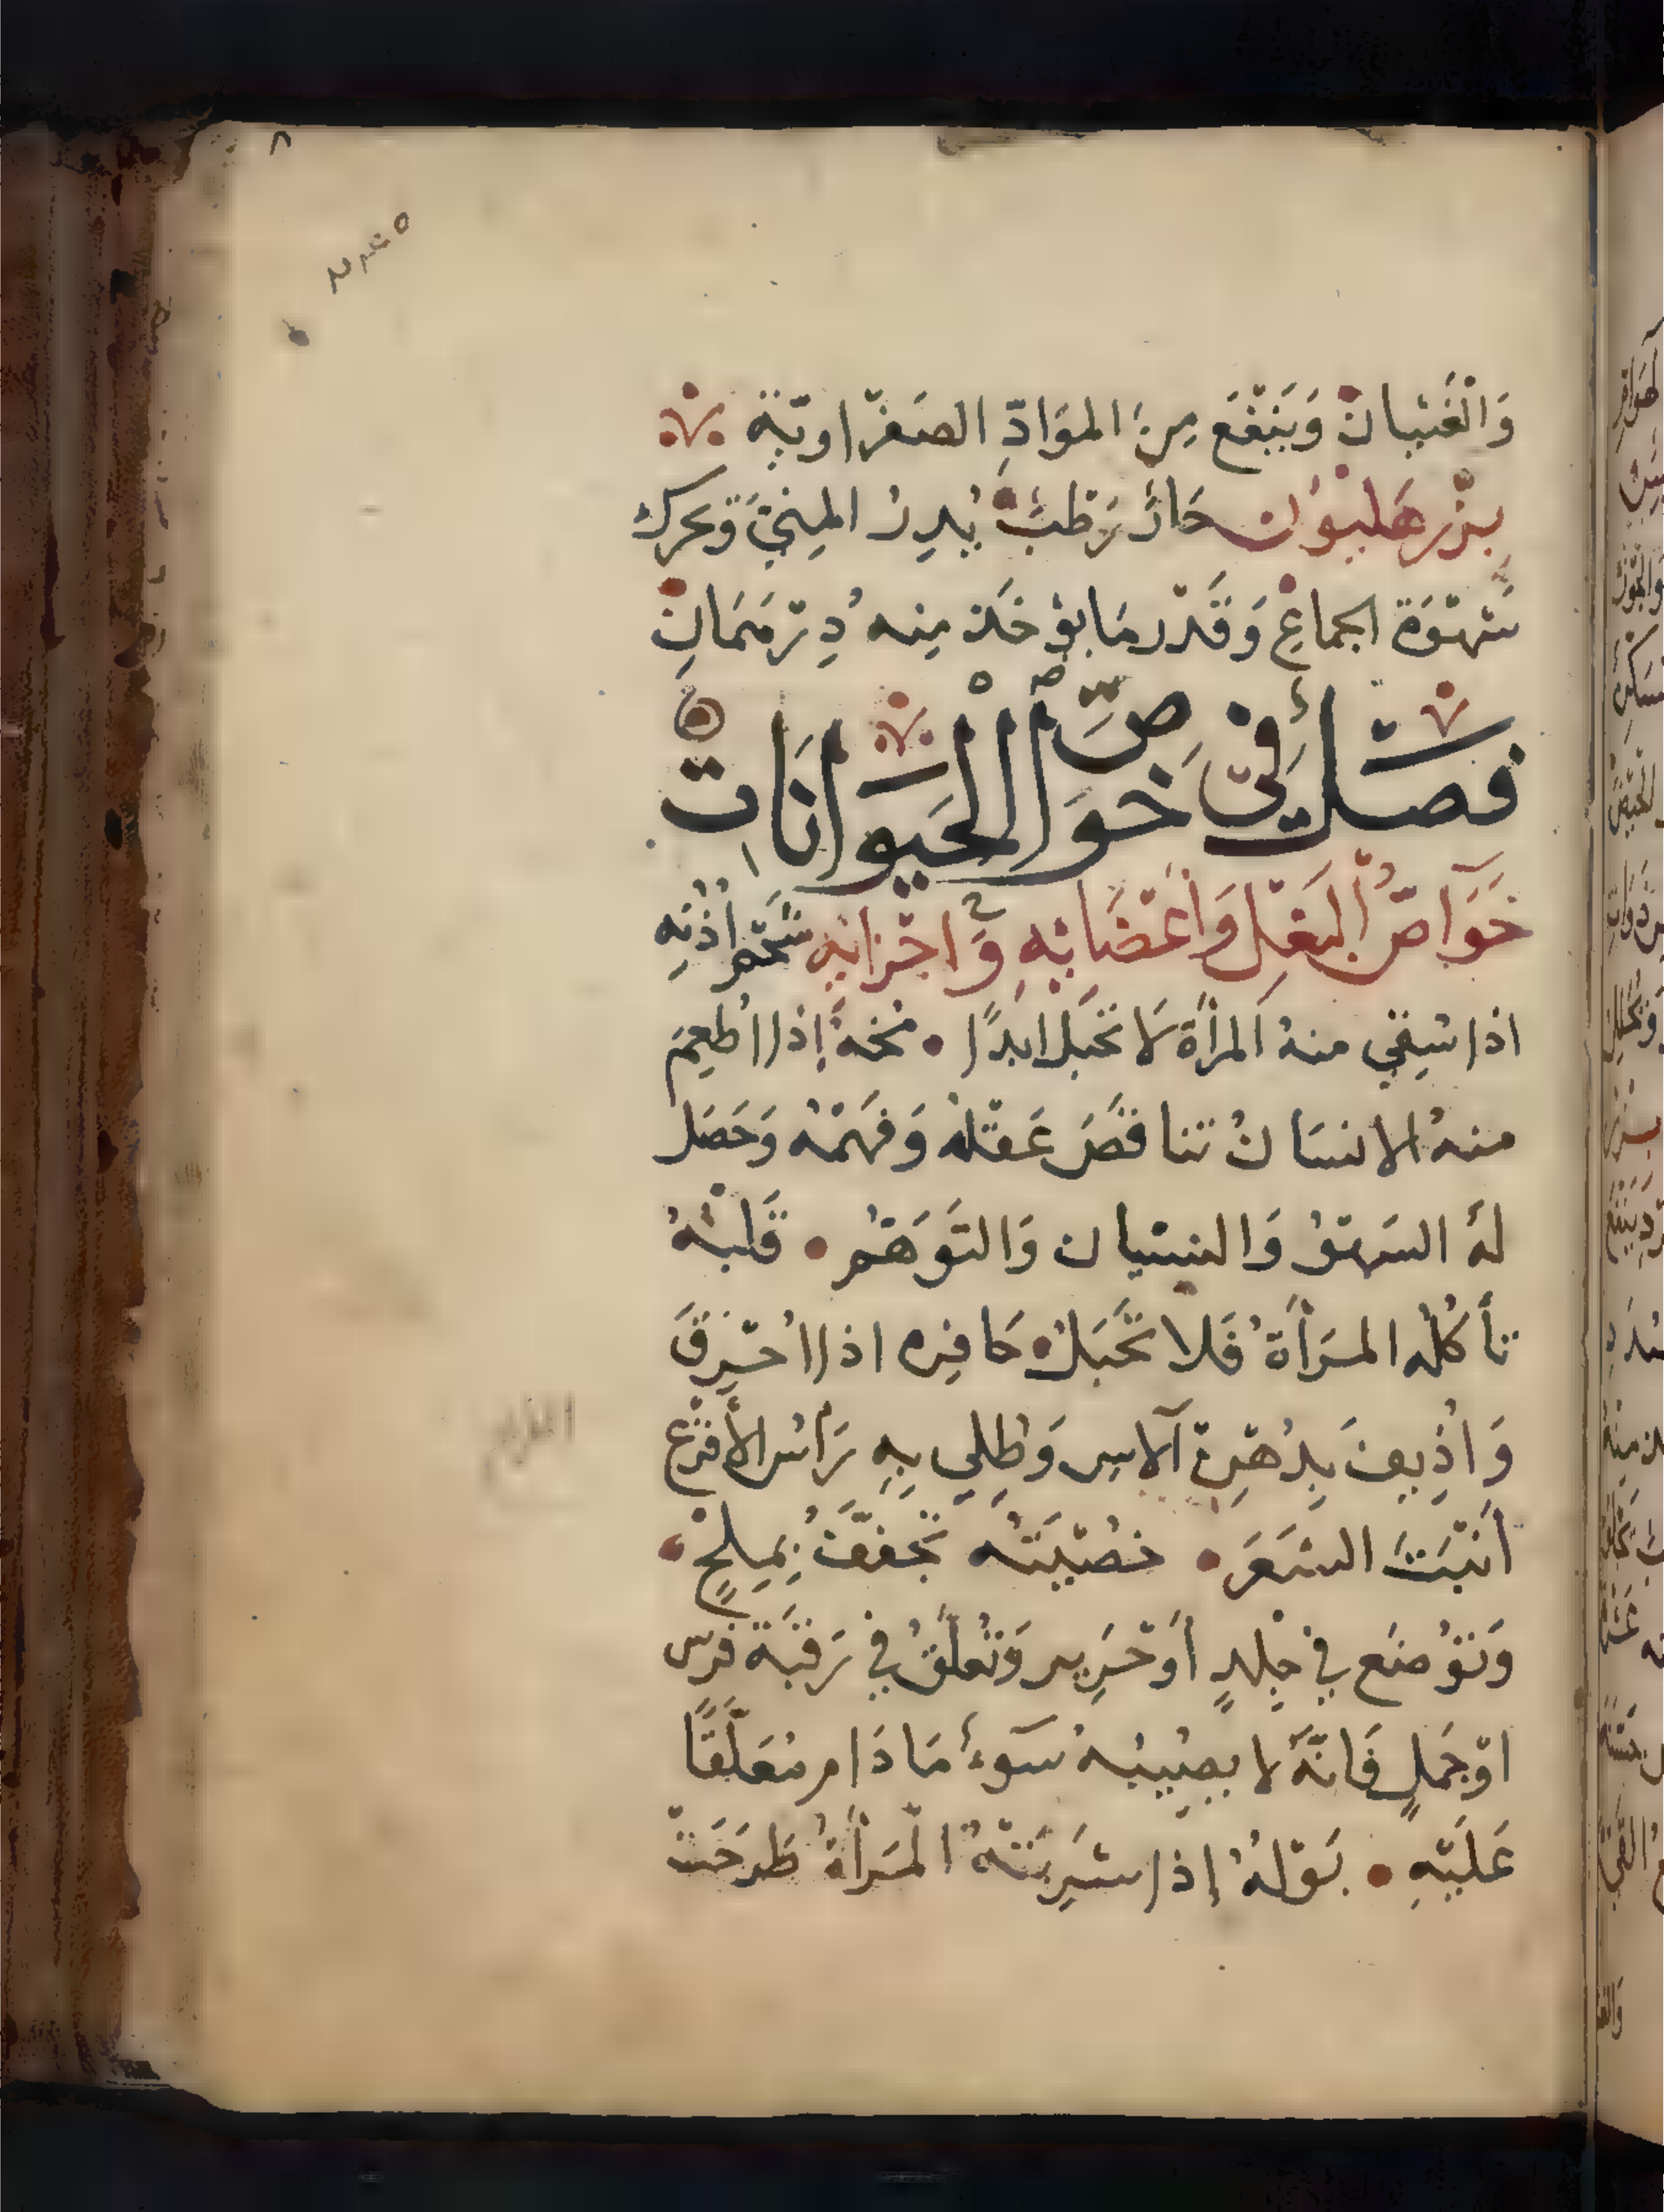 ٨
وَالْغَثَيانْ وَيَنْفَعَ مِنَ المَوَادِّ الصَفْرَاويّة
بزْر هَليوُن حَارٌ رَطْبٌ يُدِرُ المِنيَّ وَيحرك
شَهْوَة الجماعِ وَقَدْر مَا يؤخَذ مِنه دِرْهَمَانِ
فصَلٌ فِي خوَاصِّ الْحَيَوانَاتِ
خَوَآصُّ البَغْل وَأعْضَائِهِ وَاجْزائِهِ شَحْم اُذنِهِ
اذا سُقِي منهُ المرأة لَا تحَبَل ابَدًا • مُخهُ إذا اُطعِمَ
منهُ الانسَانُ تناقصَ عَقْلهُ وَفهَمْهُ وَحَصَل
لهُ السَهْوُ وَالنسْيان وَالتَوَهُّم • قَلبْهُ
تأكلُه المَرأة فَلا تَحْبَلُ • حَافِره اذا اُحْرِقَ
وَاُذِيفَ بِدُهْنِ آلاسِ وَطُلِي بِهِ رَأسُ الأَقْرَع
اَنْبَتَ الشَعَرَ • خصْيَتُه تجَففَّ بِمِلحٍ •
وَتوُضَع في جِلدٍ أوْ حَرِير وَتُعلَّقُ في رَقبَة فرَس
اوْ جَملٍ فَانّهُ لا يصِيبُهُ سَوءُ مَا دَام مُعَلَّقًا
عَلَيْهِ • بَوْلهُ إذا شرِبَتْهُ الْمَرأةُ طَرَحَتْ